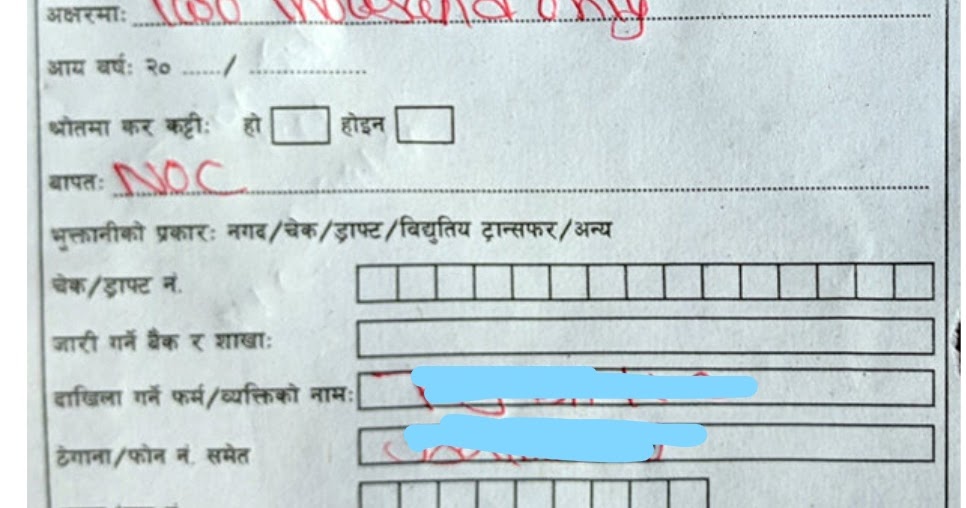 अक्षरमा: Two thousand only
आय वर्ष: २० ....../ ..................
श्रोतमा कर कट्टी: हो होइन
बापत: NOC
भुक्तानीको प्रकार: नगद/चेक/ड्राफ्ट/विद्युतिय ट्रान्सफर/अन्य
चेक/ड्राफ्ट नं.
जारी गर्ने बैक र शाखा:
दाखिला गर्ने फर्म/व्यक्तिको नाम:
ठेगाना/फोन नं. समेत